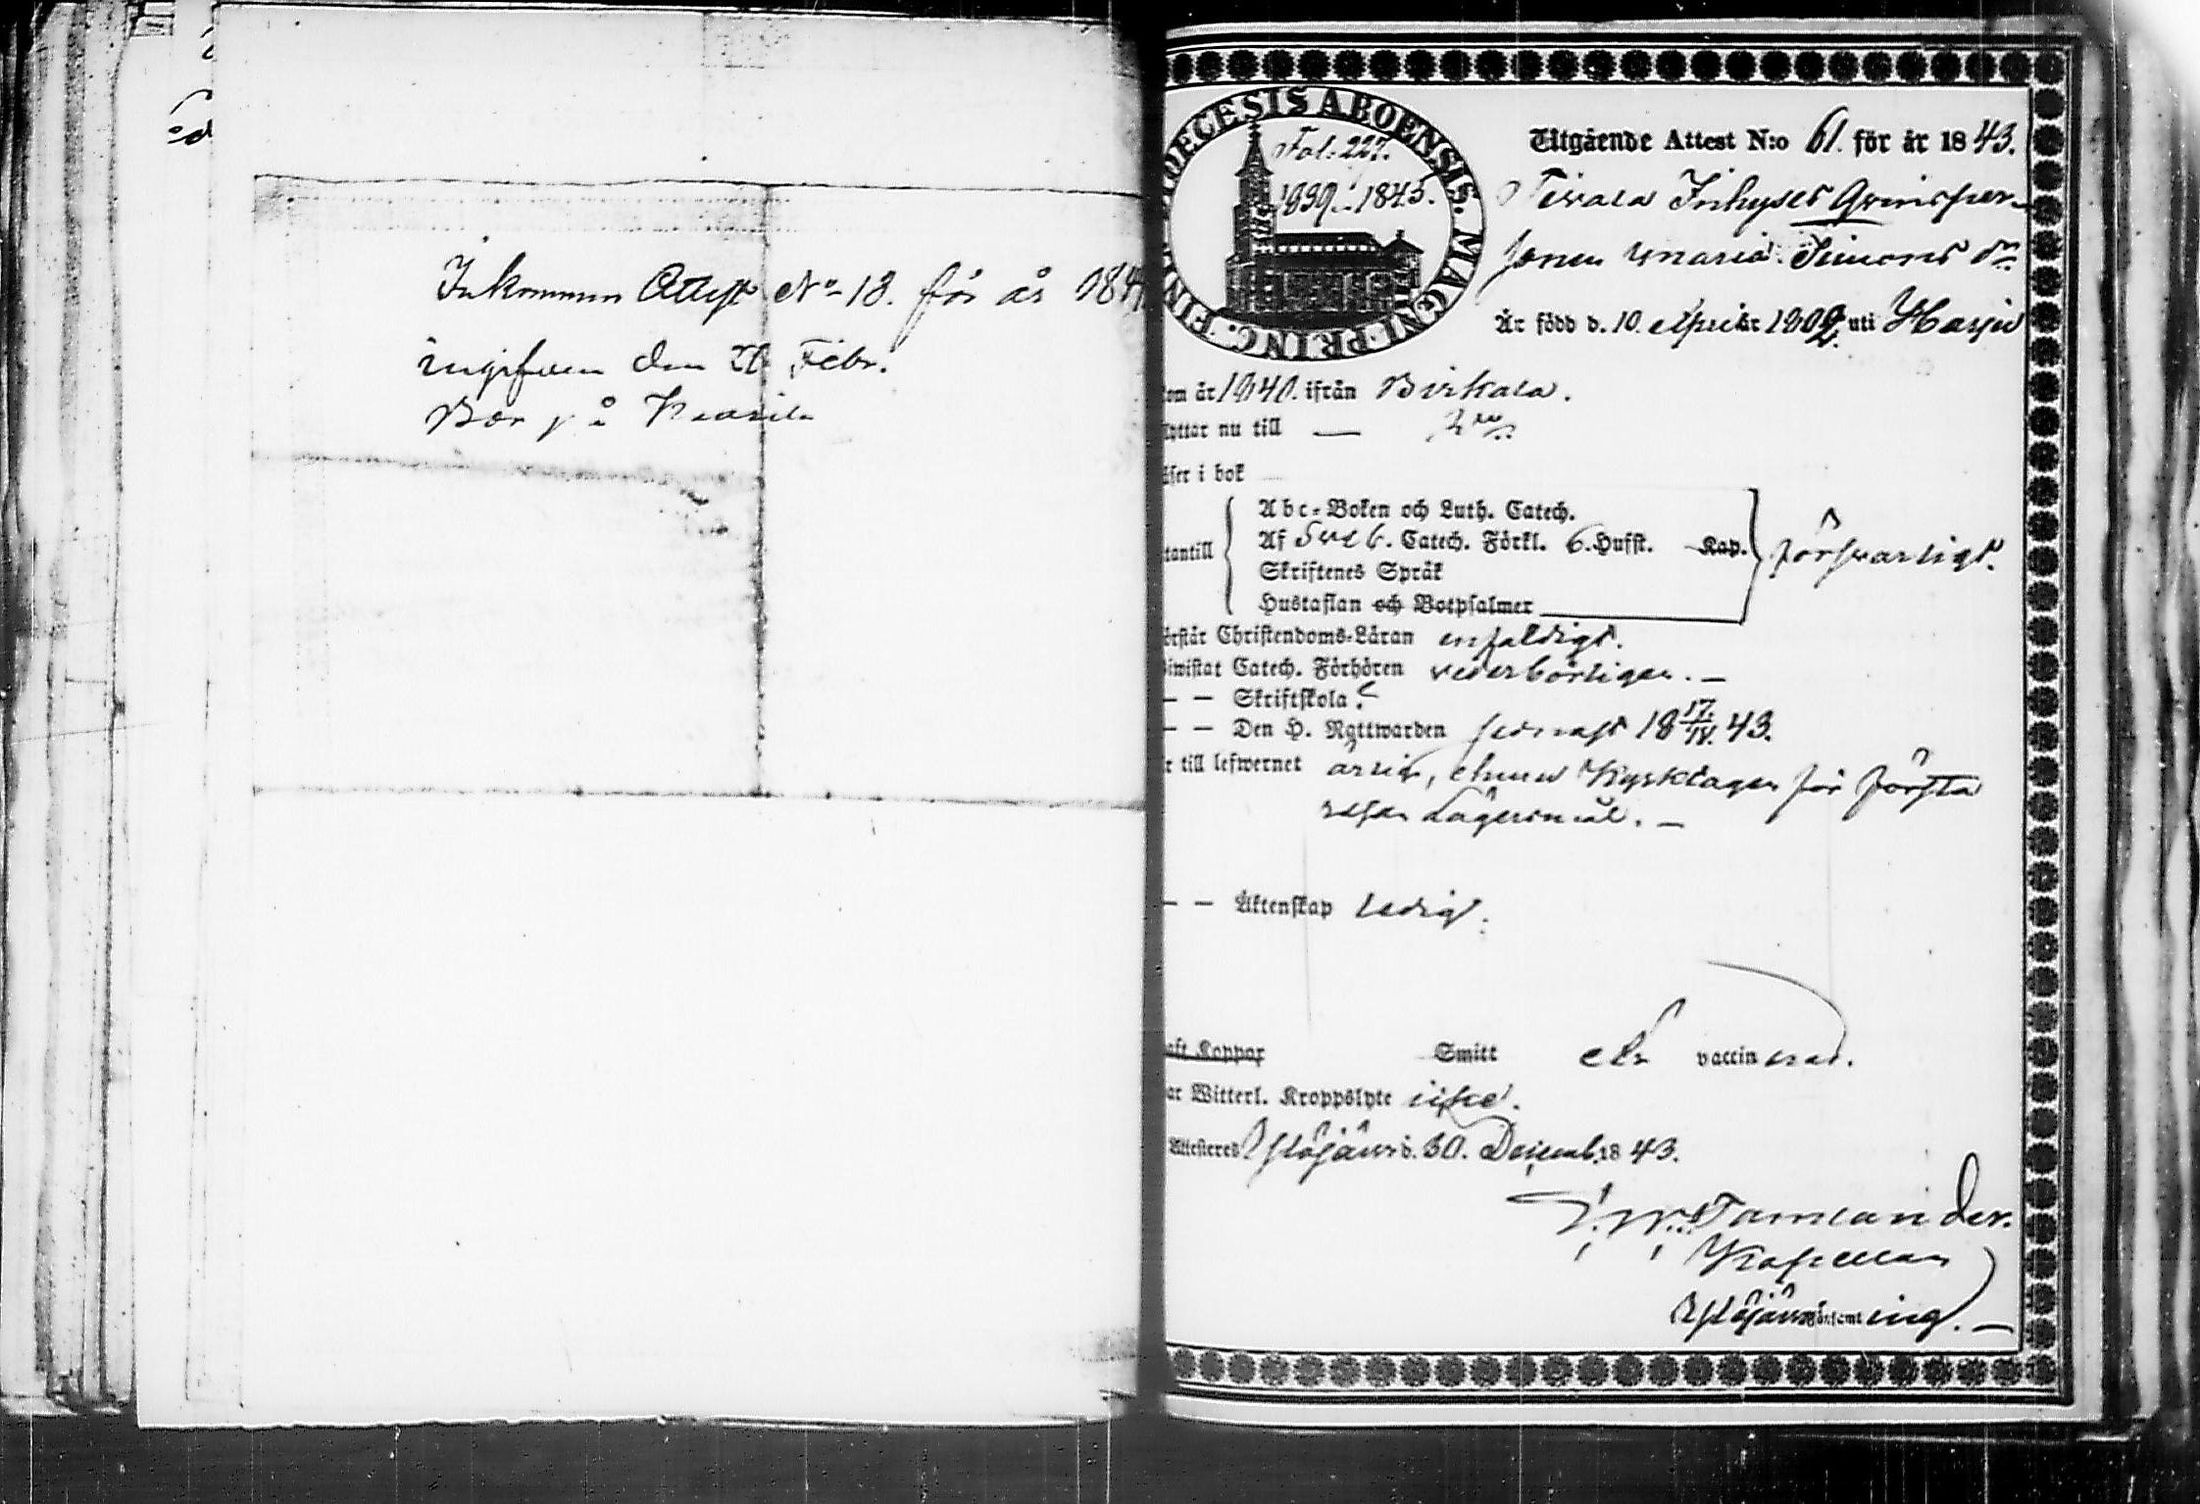 Inkommen Attest No 18. för år 184
ingifven den 26 Febr.
Bor på
FINL. ARCHIDIOECESIS ABOENSIS. MAGNI PRINC.
Fol. 227.
1839–1845.
Utgående Attest N:o 61. för år 1843.
Inhyses Qvinsper-
sonen Maria Simons dr
Är född d. 10 April år 1802 uti Harju
om år 1840. ifrån Birkala.
lyttar nu till —
äser i bok
Abc-Boken och Luth. Catech.
tantill Af Sveb. Catech. Förkl. 6. Hufst. Kap. försvarligt.
Skriftenes Språk
Hustaflan och Botpsalmer
örstår Christendoms-Läran enfaldigt.
biwistat Catech. Förhören vederbörligen. —
— — Skriftskola
— — Den H. Nattwarden sednast 18 17/18. 43.
r till lefwernet ärlig, ehuru Kyrktagen för första
resan Lägersmål. —
— — Äktenskap ledig.
aft Koppor Smitt Är vaccinerad.
ar Witterl. Kroppslyte icke.
Attesteres Ylöjärvi d. 30. Decemb. 1843.
Tamlander.
Kapellan
Ylöjärvi Församling. —